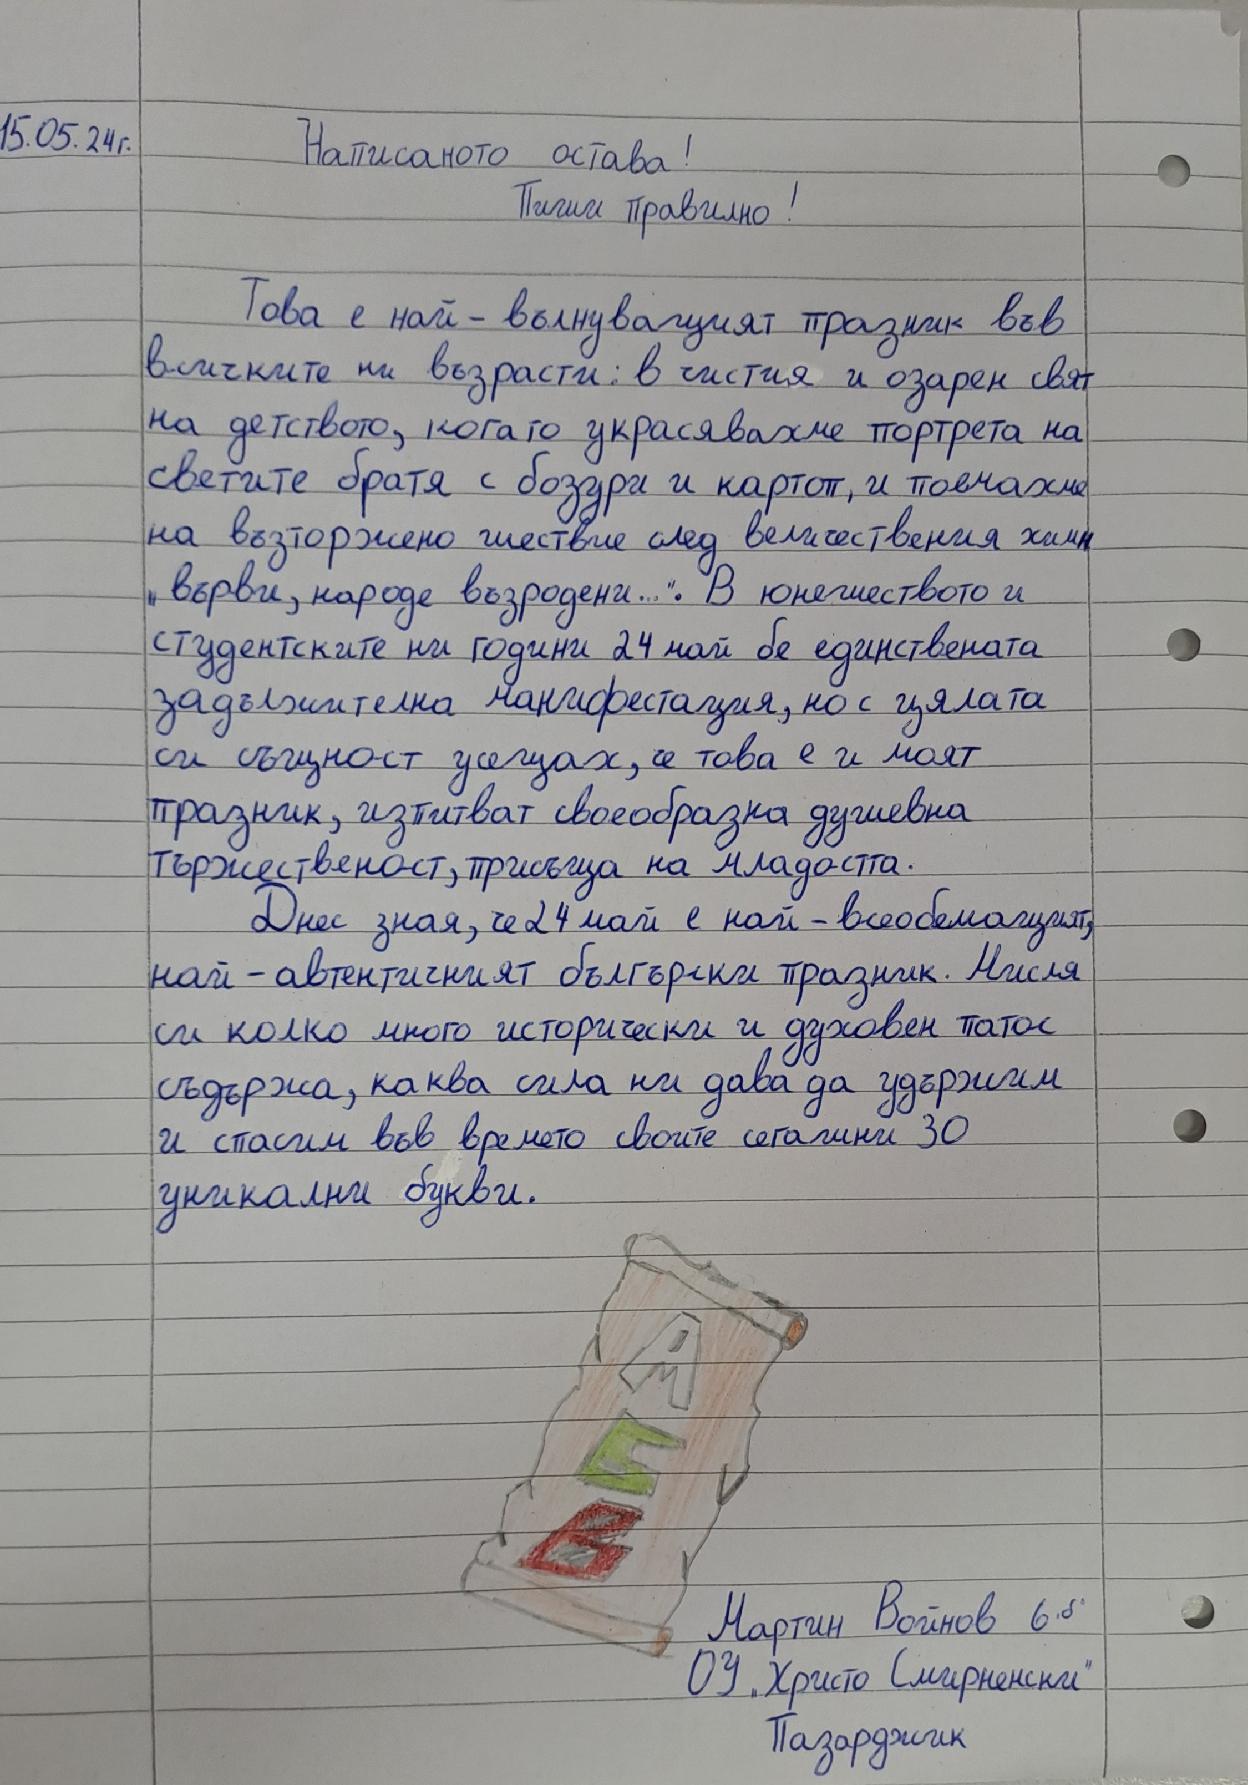 15.05.24г.
Написаното остава!
Пиши правилно!
Това е най-вълнуващият празник във
всичките ни възрасти: в чистия и озарен свят
на детството, когато украсявахме портрета на
светите братя с божури и картоп, и поемахме
на възторжено шествие след величествения химн
„Върви, народе възродени...". В юношеството и
студентските ни години 24 май бе единствената
задължителна манифестация, но с цялата
си същност усещах, че това е и моят
празник, изпитват своеобразна душевна
тържественост, присъща на младостта.
Днес зная, че 24 май е най-всеобемащият,
най-автентичният български празник. Мисля
си колко много исторически и духовен патос
съдържа, каква сила ни дава да удържим
и спасим във времето своите сегашни 30
уникални букви.
А
Б
В
Мартин Войнов 6.б"
ОУ „Христо Смирненски"
Пазарджик